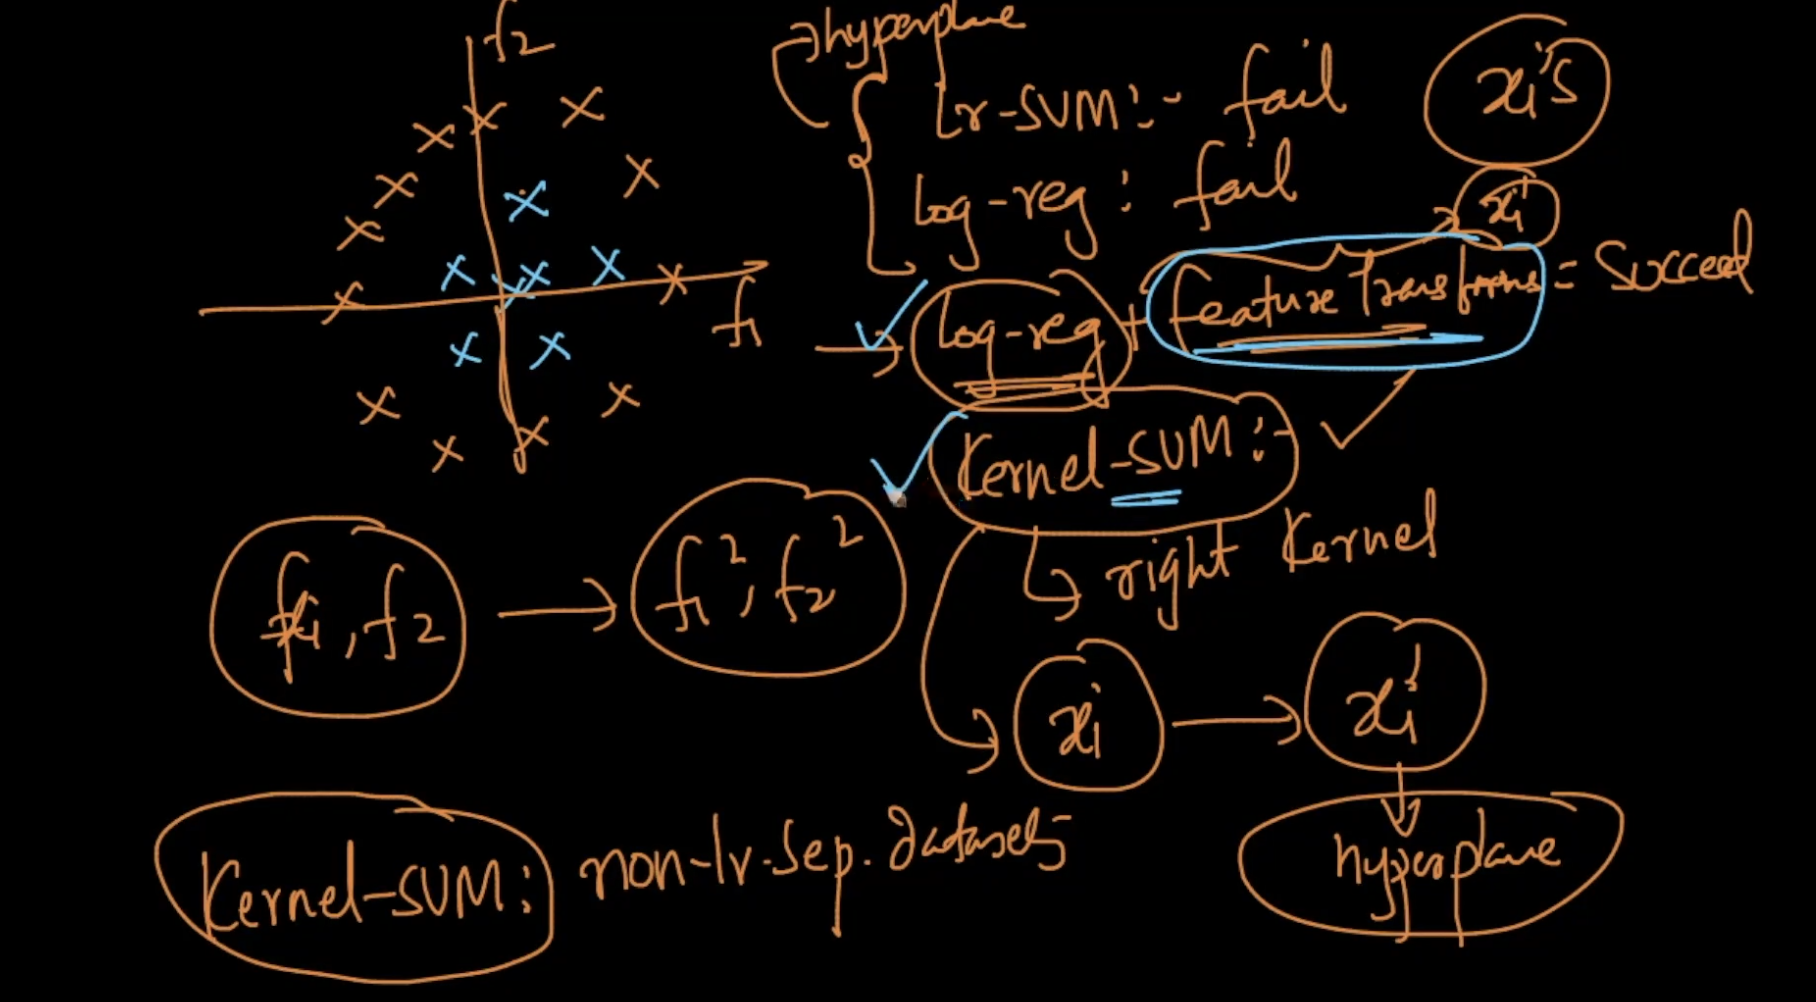 f2
hyperplane
lr-SVM:- fail
xi's
log-reg: fail
xi'
f1
log-reg + feature Transforms = Succeed
Kernel-SVM:-
right Kernel
f1, f2 → f1², f2²
xi → xi'
hyperplane
Kernel-SVM: non-lr-sep. datasets